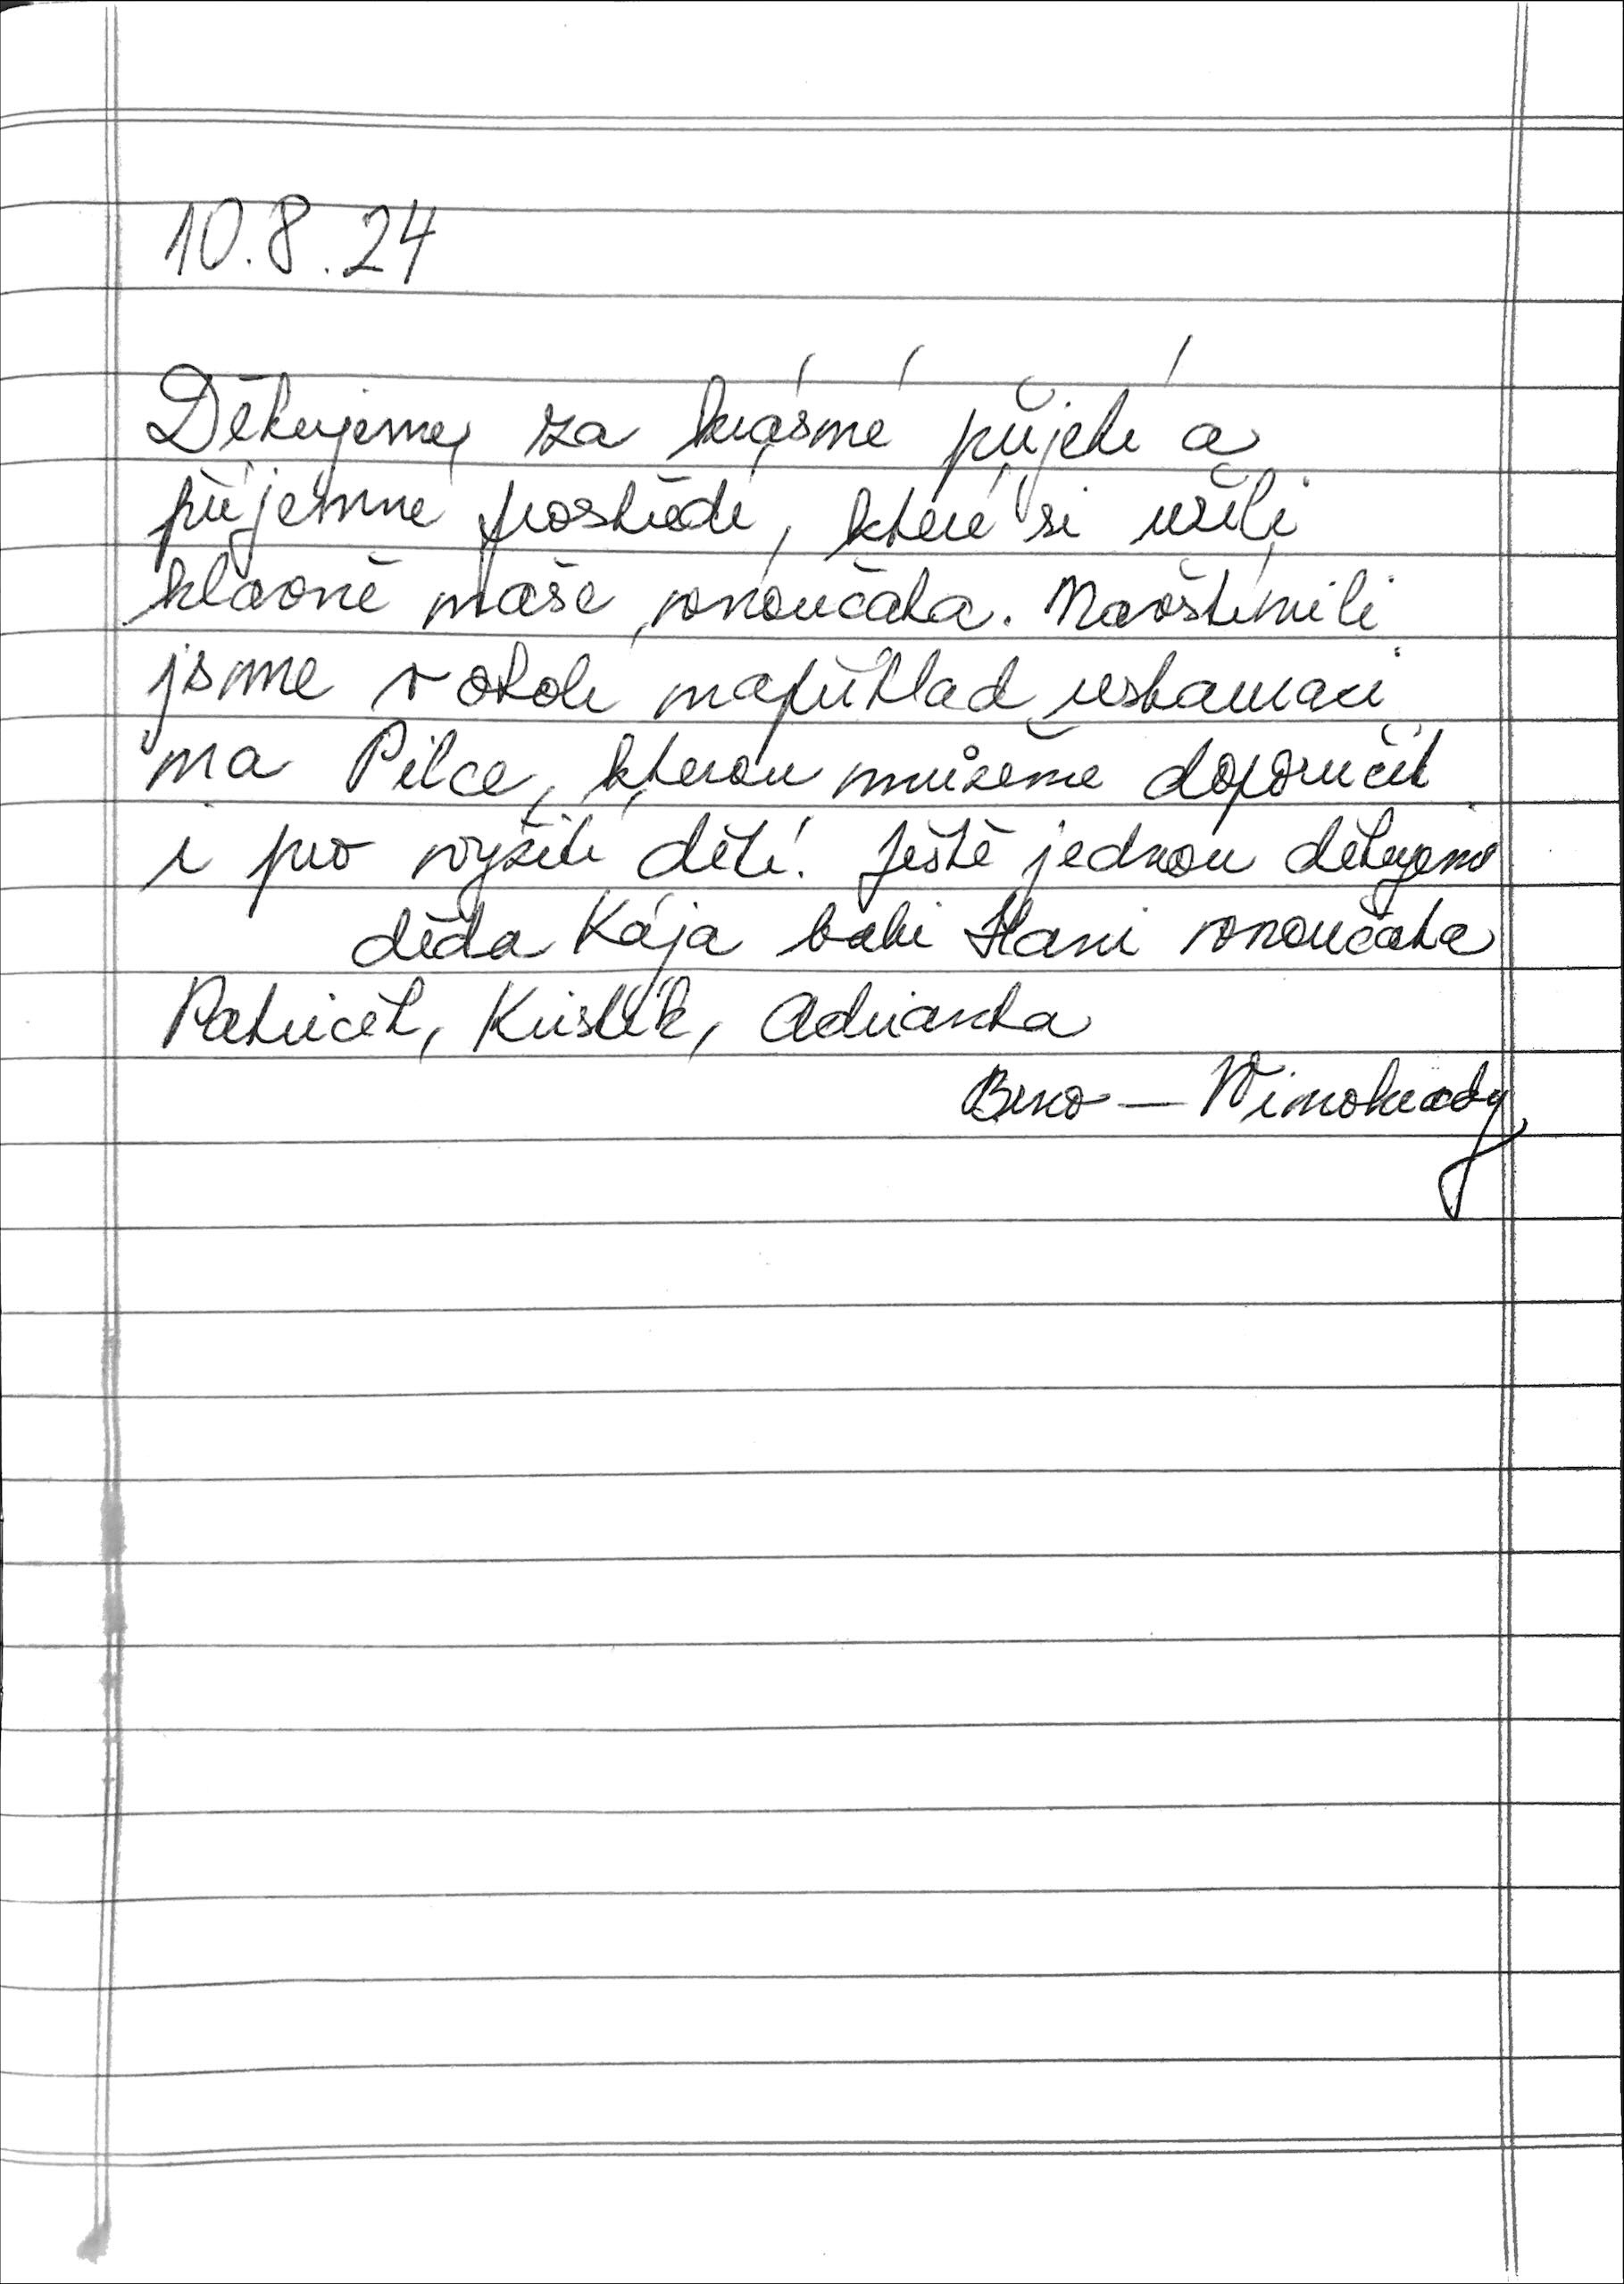 10.8.24
Děkujeme za krásné přijetí a
příjemné prostředí, které si užili
hlavně naše vnoučata. Navštívili
jsme v okolí například restauraci
na Pilce, kterou můžeme doporučit
i pro vyžití dětí. Ještě jednou děkujeme
děda Kája babi Hani vnoučata
Patriček, Kristík, Adrianka
Brno - Vinohrady